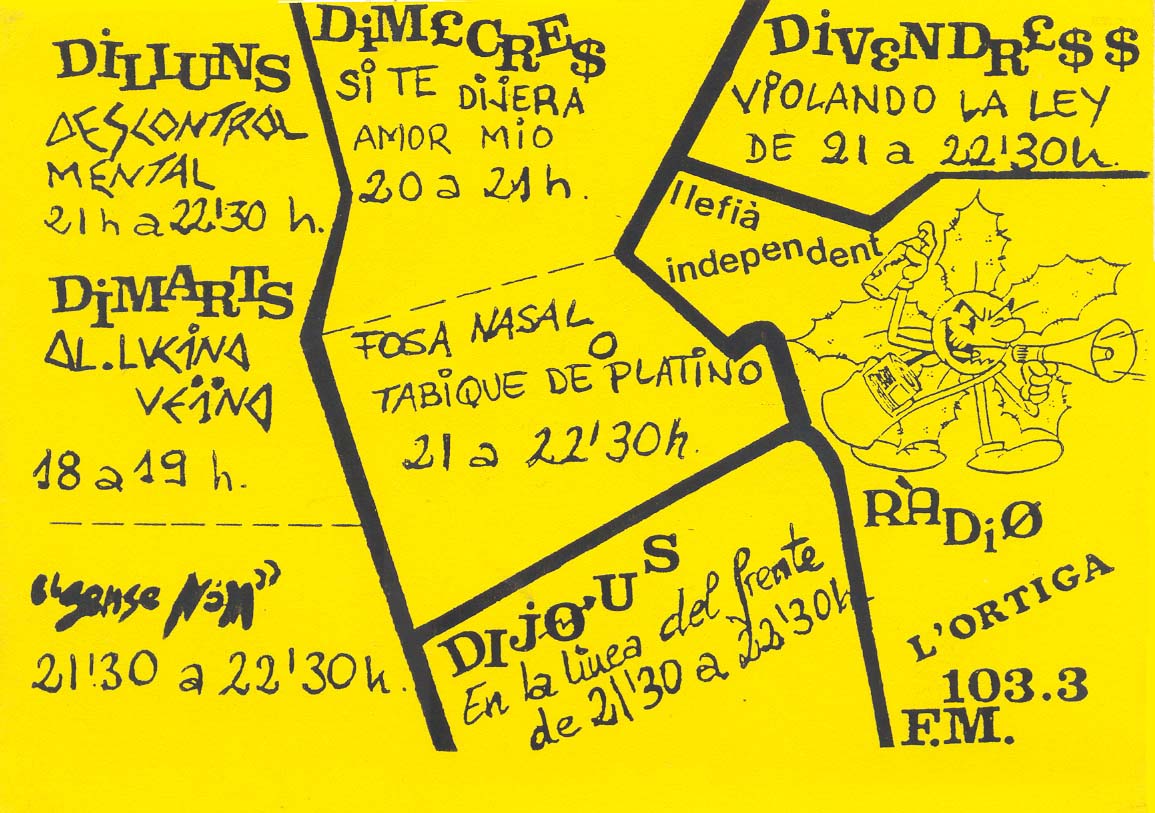 DiLLUNS
DESCONTROL
MENTAL
21h a 22'30 h.
DiMARTS
AL.LUCINA
VEïNA
18 a 19 h.
"sense NOM"
21'30 a 22'30h.
DiM£CRE$
Si TE DiJERA
AMOR MIO
20 a 21h.
FOSA NASAL
O
TABiQUE DE PLATiNO
21 a 22'30h.
DIjØ'US
En la linea del frente
de 21'30 a 22'30h.
DiVENDR£$$
ViOLANDO LA LEY
DE 21 a 22'30h.
llefià
independent
RÀDiØ
L'ORTIGA
103.3
F.M.